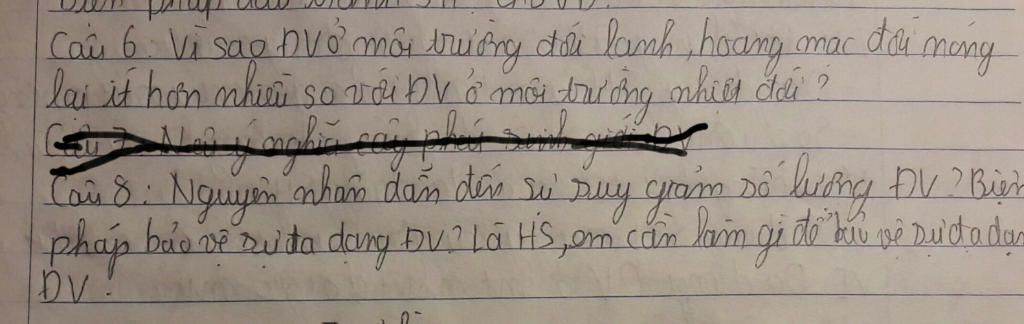 Câu 6: Vì sao ĐV ở môi trường đới lạnh, hoang mạc đới nóng
lại ít hơn nhiều so với ĐV ở môi trường nhiệt đới?
Câu 7: Nêu ý nghĩa cây phát sinh giới ĐV
Câu 8: Nguyên nhân dẫn đến sự suy giảm số lượng ĐV? Biện
pháp bảo vệ sự đa dạng ĐV? Là HS, em cần làm gì để bảo vệ sự đa dạn
ĐV.